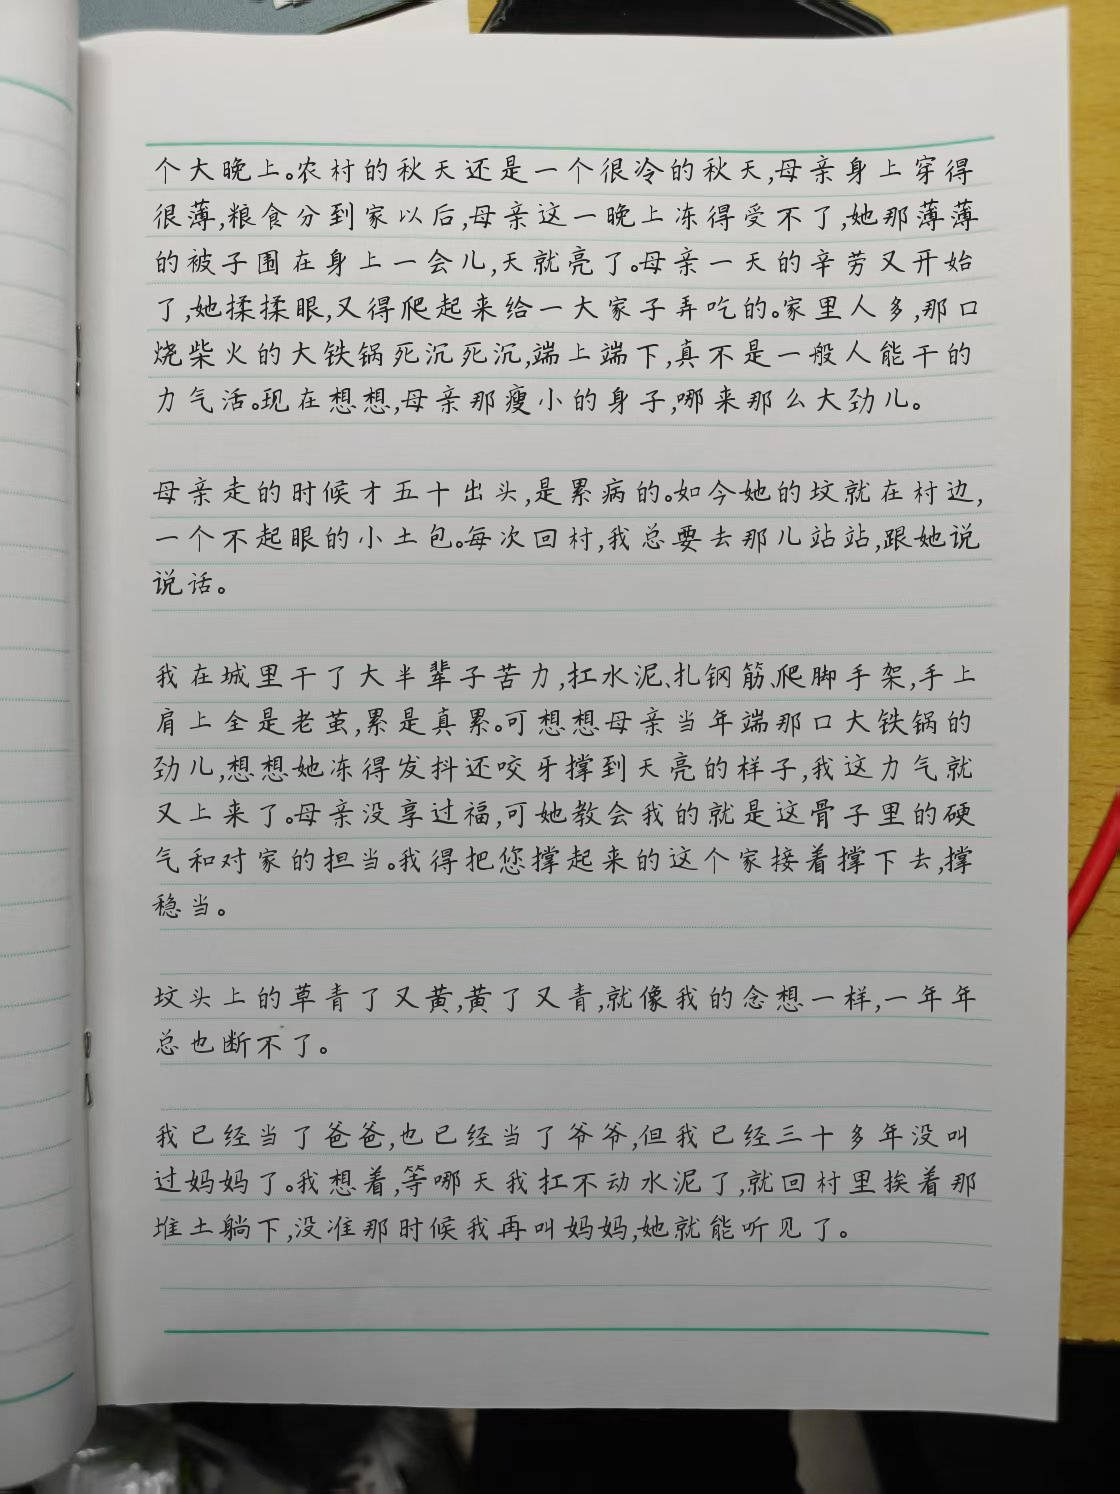 个大晚上。农村的秋天还是一个很冷的秋天,母亲身上穿得
很薄,粮食分到家以后,母亲这一晚上冻得受不了,她那薄薄
的被子围在身上一会儿,天就亮了。母亲一天的辛劳又开始
了,她揉揉眼,又得爬起来给一大家子弄吃的。家里人多,那口
烧柴火的大铁锅死沉死沉,端上端下,真不是一般人能干的
力气活。现在想想,母亲那瘦小的身子,哪来那么大劲儿。
母亲走的时候才五十出头,是累病的。如今她的坟就在村边,
一个不起眼的小土包。每次回村,我总要去那儿站站,跟她说
说话。
我在城里干了大半辈子苦力,扛水泥、扎钢筋、爬脚手架,手上
肩上全是老茧,累是真累。可想想母亲当年端那口大铁锅的
劲儿,想想她冻得发抖还咬牙撑到天亮的样子,我这力气就
又上来了。母亲没享过福,可她教会我的就是这骨子里的硬
气和对家的担当。我得把您撑起来的这个家接着撑下去,撑
稳当。
坟头上的草青了又黄,黄了又青,就像我的念想一样,一年年
总也断不了。
我已经当了爸爸,也已经当了爷爷,但我已经三十多年没叫
过妈妈了。我想着,等哪天我扛不动水泥了,就回村里挨着那
堆土躺下,没准那时候我再叫妈妈,她就能听见了。